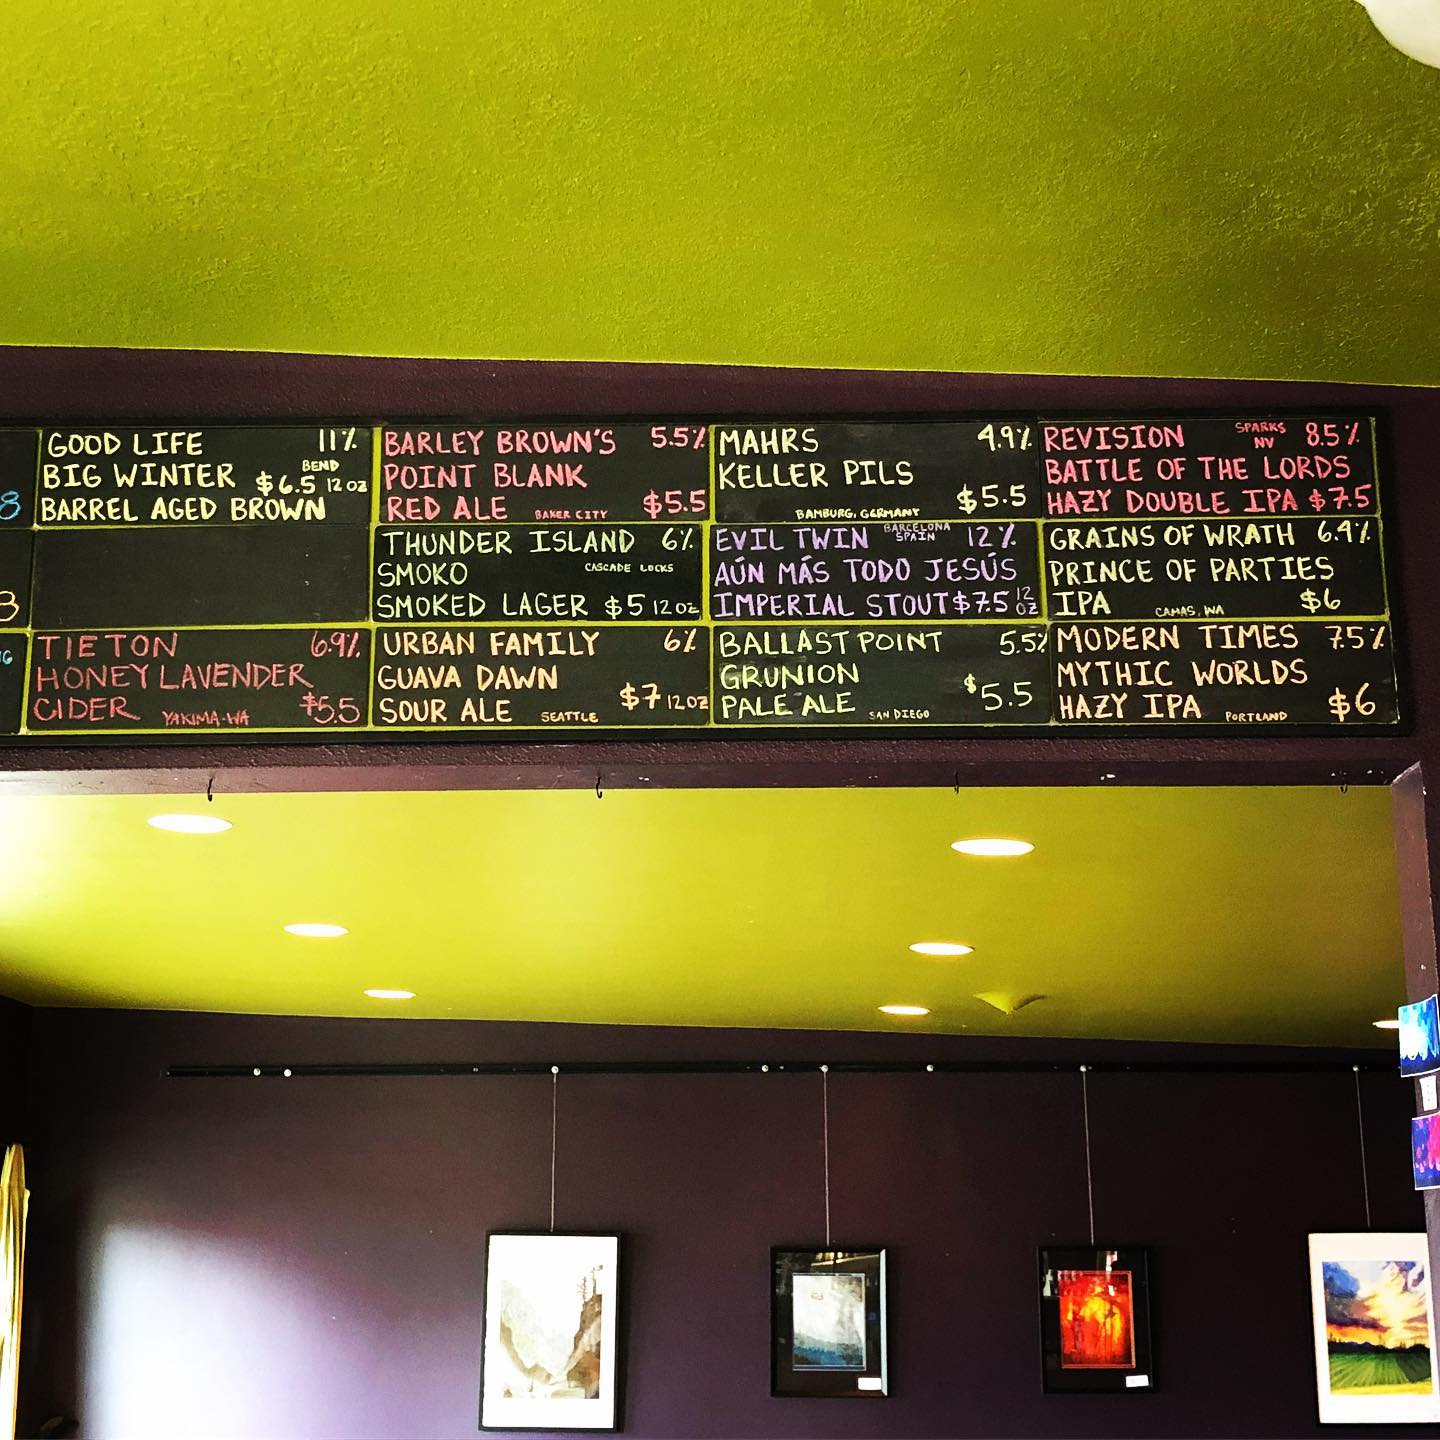 8
GOOD LIFE 11%
BIG WINTER $6.5 BEND 12 OZ
BARREL AGED BROWN
BARLEY BROWN'S 5.5%
POINT BLANK
RED ALE BAKER CITY $5.5
MAHRS 4.9%
KELLER PILS
BAMBURG, GERMANY $5.5
REVISION SPARKS NV 8.5%
BATTLE OF THE LORDS
HAZY DOUBLE IPA $7.5
THUNDER ISLAND 6%
SMOKO CASCADE LOCKS
SMOKED LAGER $5 12 OZ
EVIL TWIN BARCELONA SPAIN 12%
AÚN MÁS TODO JESÚS
IMPERIAL STOUT $7.5 12 OZ
GRAINS OF WRATH 6.4%
PRINCE OF PARTIES
IPA CAMAS, WA $6
TIETON 6.9%
HONEY LAVENDER
CIDER YAKIMA-WA $5.5
URBAN FAMILY 6%
GUAVA DAWN
SOUR ALE SEATTLE $7 12 OZ
BALLAST POINT 5.5%
GRUNION
PALE ALE SAN DIEGO $5.5
MODERN TIMES 7.5%
MYTHIC WORLDS
HAZY IPA PORTLAND $6